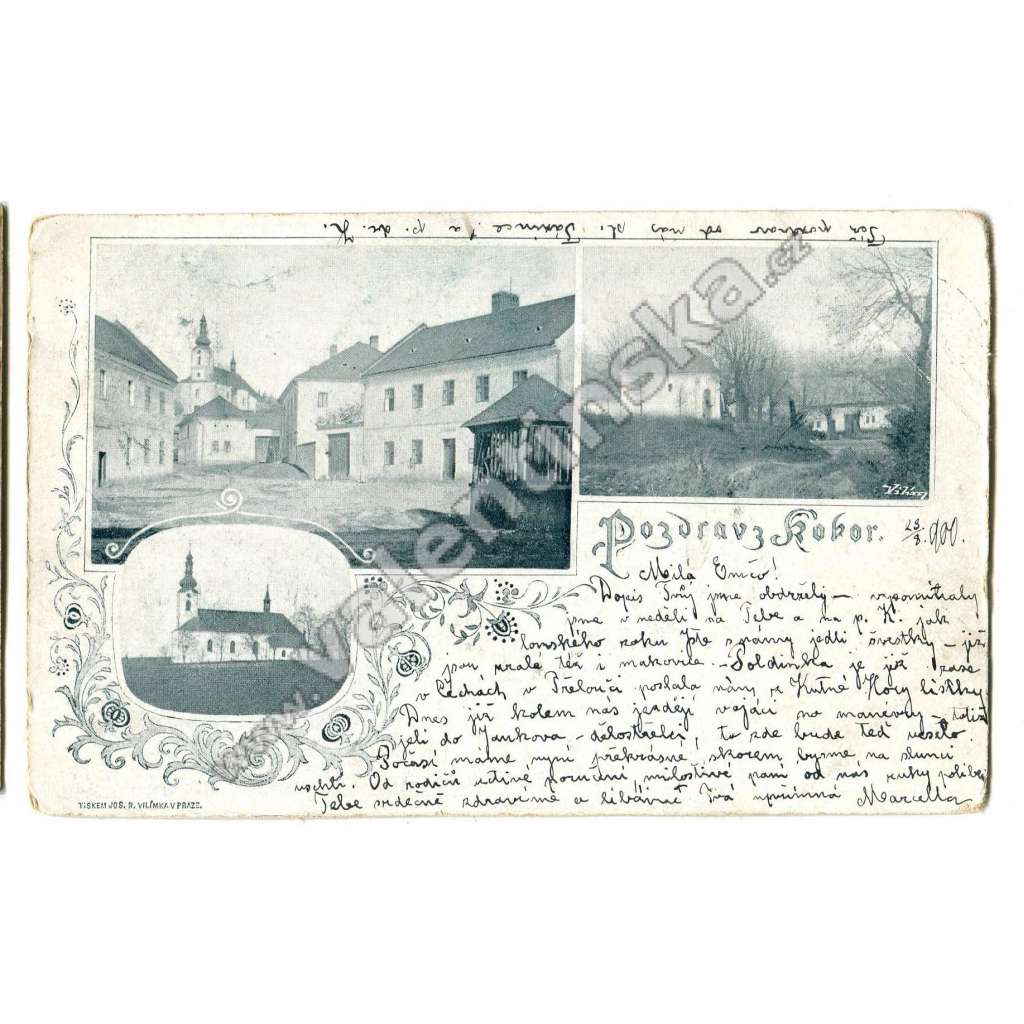 Též pozdrav od nás sl. a p. dr. K.
www.valentinska.cz
Pozdrav z Kokor. 23/8 900.
Milá Emčo!
Dopis Tvůj jsme obdržely – vzpomínaly
jsme v neděli na Tebe a na p. K. jak
lonského roku jste s námi jedli švestky – již
jsou zralé též i makovice. – Poldinka je již zase
v Čechách v Přelouči poslala nám z Kutné Hory lístky
Dnes již kolem nás jezdějí vojáci na manévry – totiž
jeli do Jankova – dělostřelci, to zde bude teď veselo.
Počasí máme nyní překrásné, skorem bysme na slunci
uschli. Od rodičů uctivé poručení, milostivé paní od nás ruky políbej
Tebe srdečně zdravíme a líbáme Tvá upřímná Marcella
TISKEM JOS. R. VILÍMKA V PRAZE.